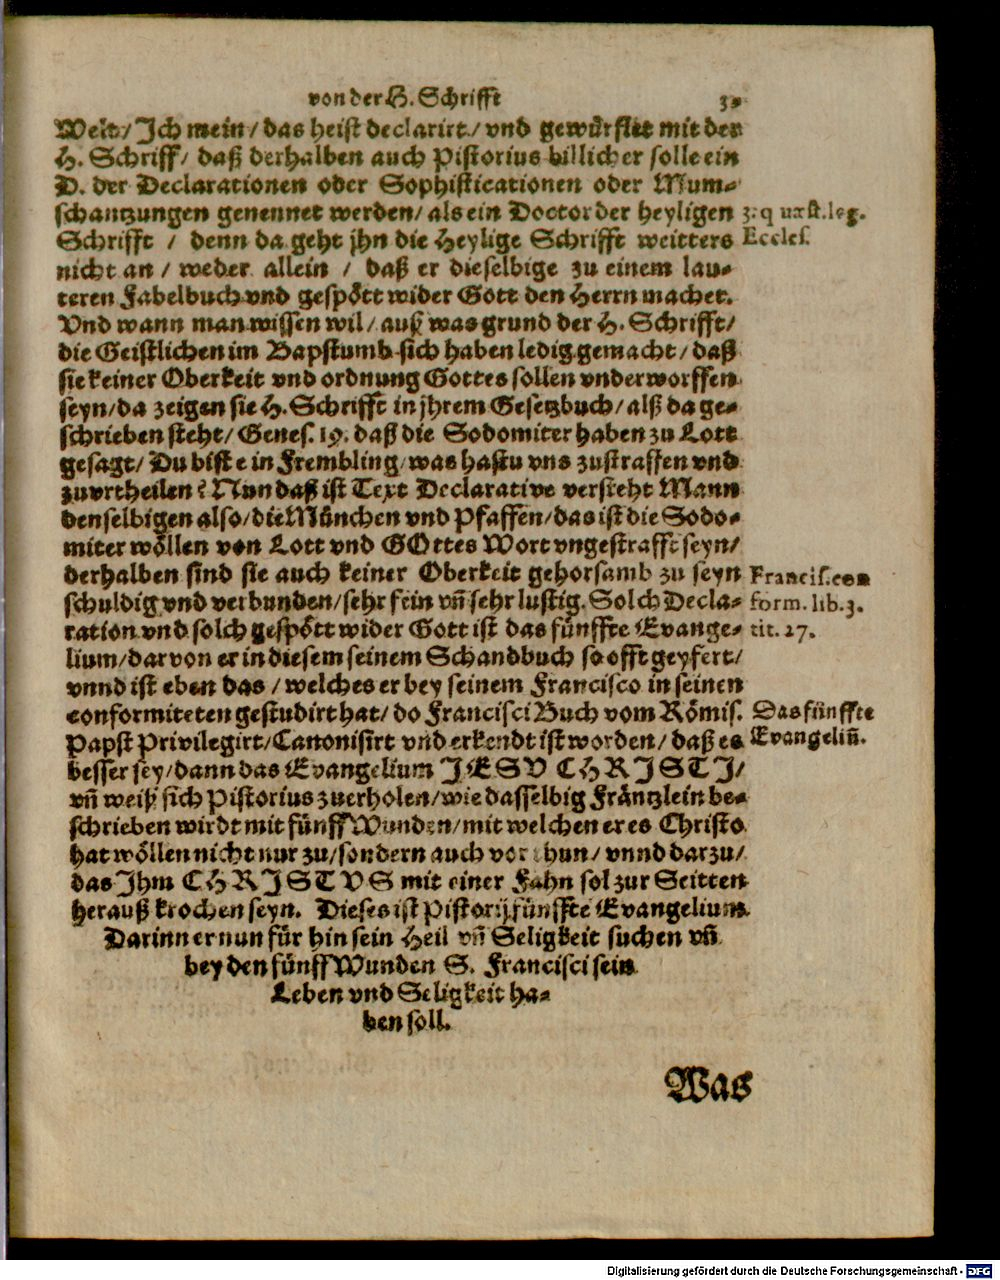 von der H. Schrifft
Welt/ Jch mein/ das heist declarirt/ vnd gewürfflet mit der
H. Schriff/ daß derhalben auch Pistorius billicher solle ein
D. der Declarationen oder Sophisticationen oder Mum-
schantzungen genennet werden/ als ein Doctor der heyligen
3. quæst. leg.
Schrifft / denn da geht jhn die Heylige Schrifft weitters
Eccles.
nicht an / weder allein / daß er dieselbige zu einem lau-
teren Fabelbuch vnd gespött wider Gott den Herrn machet.
Vnd wann man wissen wil/ auß was grund der H. Schrifft/
die Geistlichen im Bapstumb sich haben ledig gemacht/ daß
sie keiner Oberkeit vnd ordnung Gottes sollen vnderworffen
seyn/ da zeigen sie H. Schrifft in jhrem Gesetzbuch/ alß da ge-
schrieben steht/ Genes. 19. daß die Sodomiter haben zu Lott
gesagt/ Du bist ein Frembling/ was hastu vns zustraffen vnd
zuvrtheilen? Nun daß ist Text Declarative versteht Mann
denselbigen also/ die München vnd Pfaffen/ das ist die Sodo-
miter wöllen von Lott vnd GOttes Wort vngestrafft seyn/
derhalben sind sie auch keiner Oberkeit gehorsamb zu seyn
Francis. con
schuldig vnd verbunden/ sehr fein vñ sehr lustig. Solch Decla-
form. lib. 3.
ration vnd solch gespött wider Gott ist das fünffte Evange-
tit. 27.
lium/ darvon er in diesem seinem Schandbuch so offt geyfert/
vnnd ist eben das / welches er bey seinem Francisco in seinen
conformiteten gestudirt hat/ do Francisci Buch vom Römis.
Das fünffte
Papst Privilegirt/ Canonisirt vnd erkendt ist worden/ daß es
Evangeliũ.
besser sey/ dann das Evangelium JESV CHRJSTJ/
vñ weiß sich Pistorius zuerholen/ wie dasselbig Fräntzlein be-
schrieben wirdt mit fünff Wunden/ mit welchen er es Christo
hat wöllen nicht nur zu/ sondern auch vorthun/ vnnd darzu/
das Jhm CHRJSTVS mit einer Fahn sol zur Seitten
herauß krochen seyn. Dieses ist Pistorij fünffte Evangelium.
Darinn er nun für hin sein Heil vñ Seligkeit suchen vñ
bey den fünff Wunden S. Francisci sein
Leben vnd Seligkeit ha-
ben soll.
Was
Digitalisierung gefördert durch die Deutsche Forschungsgemeinschaft - DFG